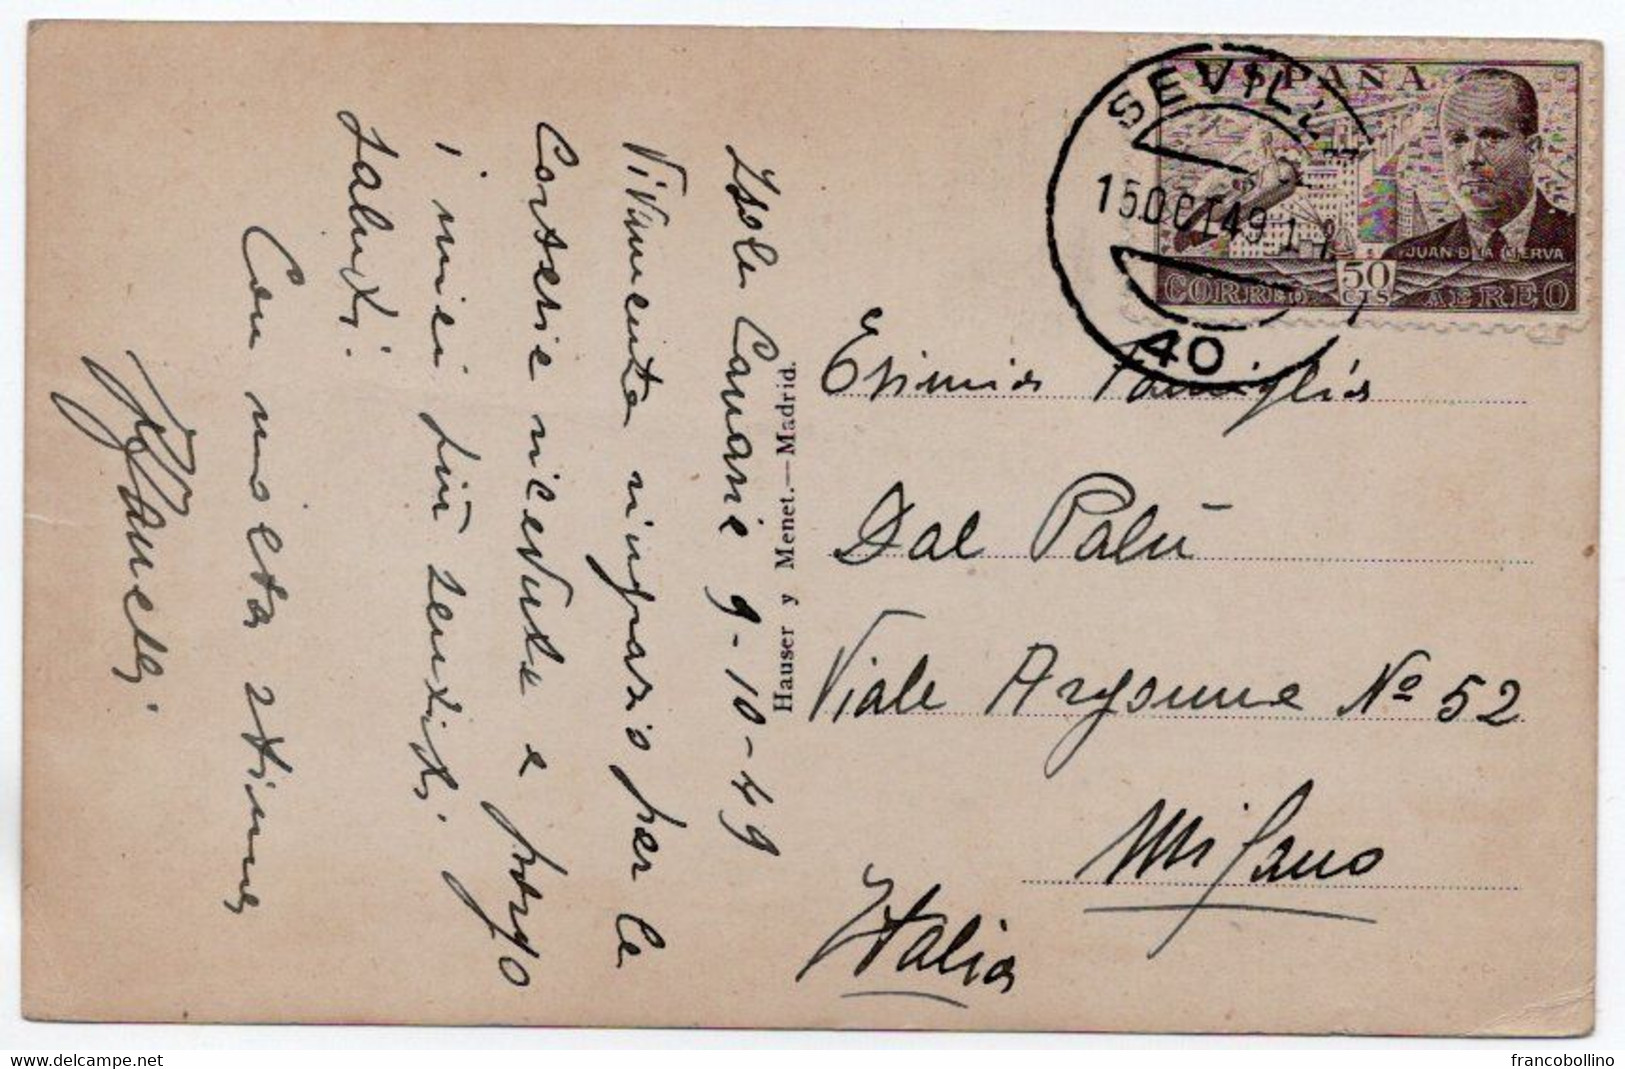 Isole Canarie 9-10-49
Vivamente ringrazio per le
Cortesie ricevute e porgo
i miei più sentiti
saluti.
Con molta stima
Hauser y Menet.—Madrid.
ESPAÑA
JUAN DE LA CIERVA
50
CTS
CORREO AEREO
SEVILLA
15 OCT 49
40
Esimia Famiglia
Dal Palù
Viale Argonne Nº 52
Milano
Italia
delcampe.net
francobollino